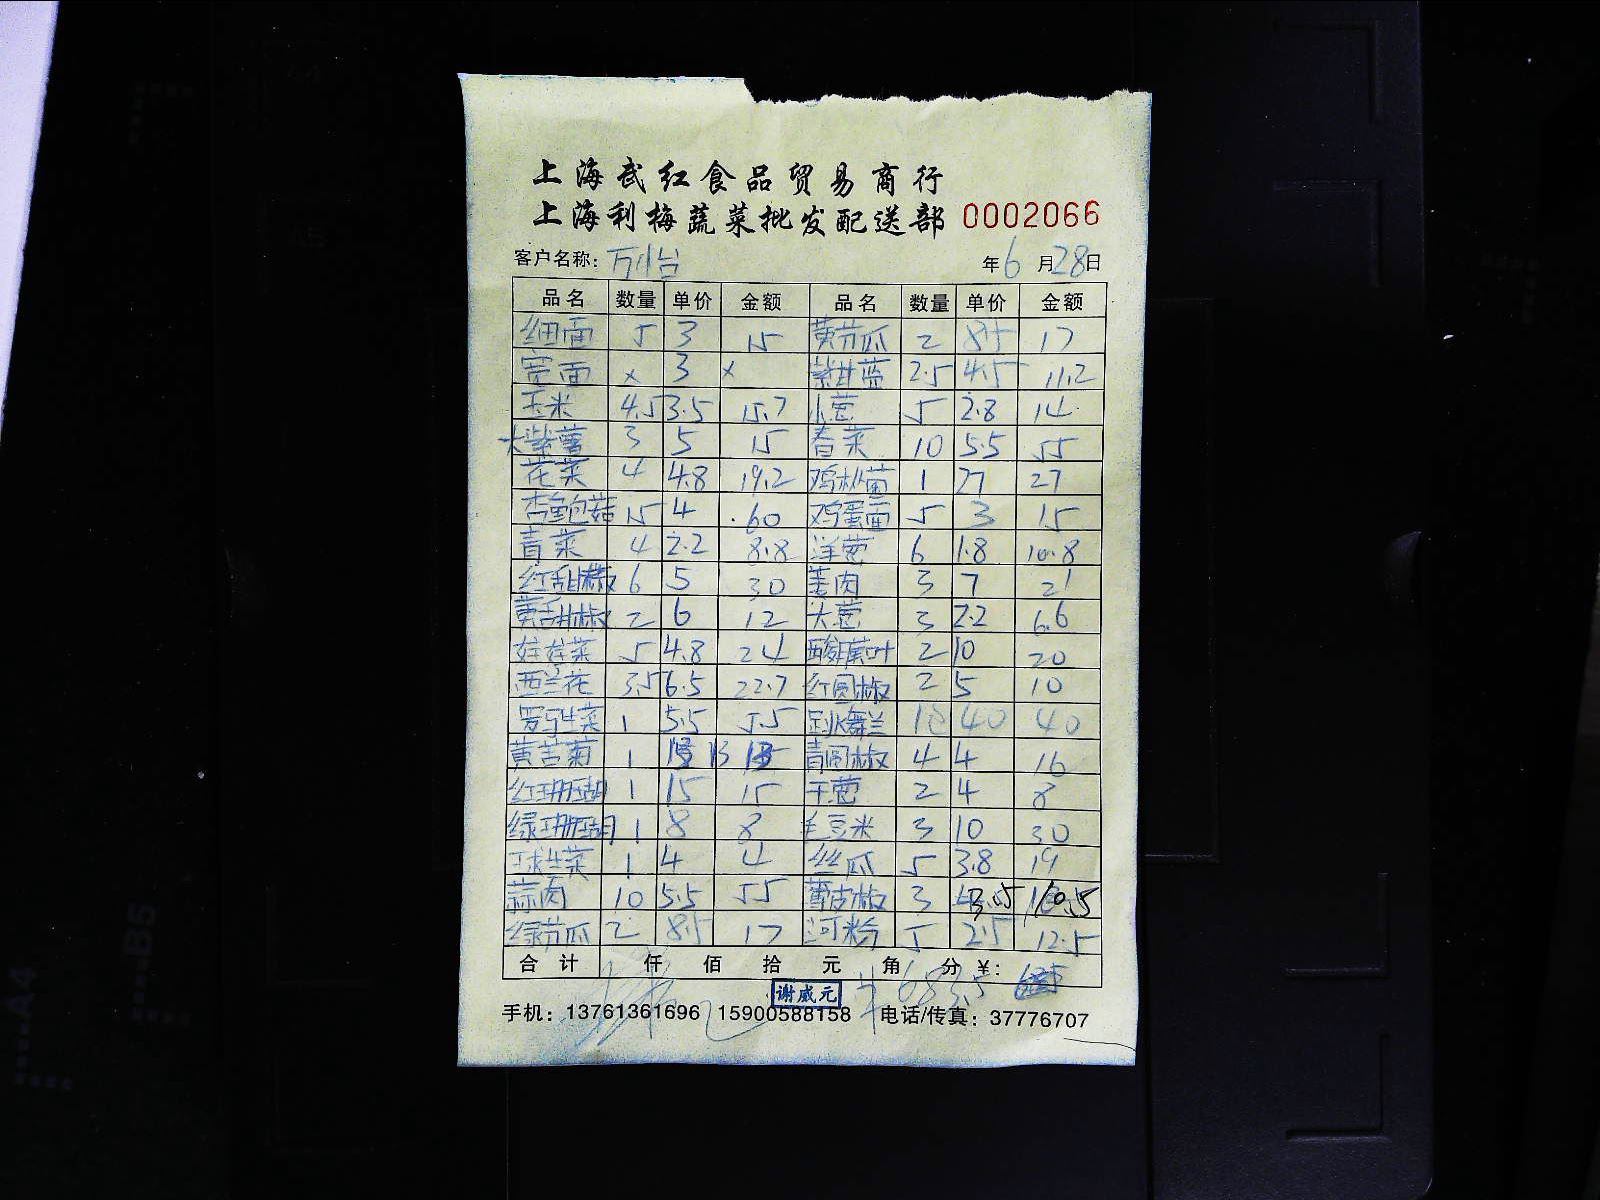 上海武红食品贸易商行
上海利梅蔬菜批发配送部 0002066
客户名称: 万怡 年6月28日
品名 数量 单价 金额 品名 数量 单价 金额
细面 5 3 15 黄节瓜 2 8.5 17
宽面 x 3 x 紫甘蓝 2.5 4.5 11.2
玉米 4.5 3.5 15.7 小葱 5 2.8 14
大紫薯 3 5 15 春菜 10 5.5 55
花菜 4 4.8 19.2 鸡枞菌 1 27 27
杏鲍菇 15 4 60 鸡蛋面 5 3 15
青菜 4 2.2 8.8 洋葱 6 1.8 10.8
红甜椒 6 5 30 姜肉 3 7 21
黄甜椒 2 6 12 大葱 3 2.2 6.6
娃娃菜 5 4.8 24 酸菜叶 2 10 20
西兰花 3.5 6.5 22.7 红圆椒 2 5 10
罗马生菜 1 5.5 5.5 跳舞兰 40 40
黄苦菊 1 13 青圆椒 4 4 16
红珊瑚 1 15 15 干葱 2 4 8
绿珊瑚 1 8 8 毛豆米 3 10 30
球生菜 1 4 4 丝瓜 5 3.8 19
蒜肉 10 5.5 55 薄皮椒 3 3.5 10.5
绿节瓜 2 8.5 17 河粉 5 2.5 12.5
合计 仟 佰 拾 元 角 分 ¥:
谢威元 683.5
手机: 13761361696 15900588158 电话/传真: 37776707